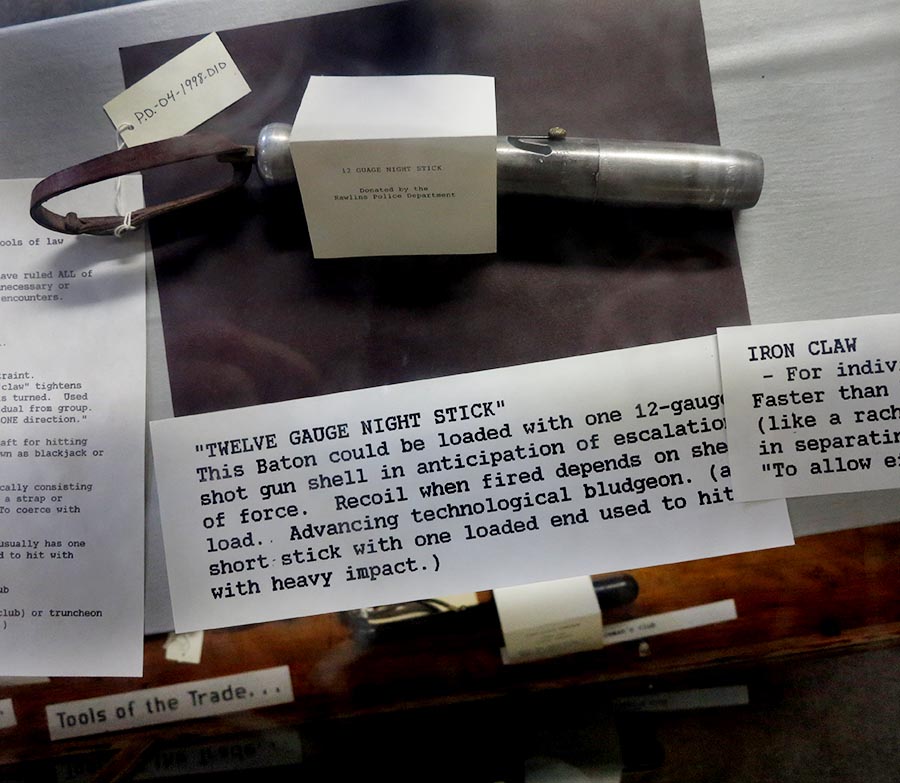 P.D.-04-1998-010
12 GUAGE NIGHT STICK
Donated by the
Rawlins Police Department
ools of law
ave ruled ALL of
necessary or
encounters.
raint.
claw" tightens
s turned. Used
dual from group.
ONE direction."
aft for hitting
wn as blackjack or
cally consisting
a strap or
To coerce with
usually has one
d to hit with
ub
club) or truncheon
)
"TWELVE GAUGE NIGHT STICK"
This Baton could be loaded with one 12-gauge
shot gun shell in anticipation of escalation
of force. Recoil when fired depends on she
load. Advancing technological bludgeon. (a
short stick with one loaded end used to hit
with heavy impact.)
IRON CLAW
- For indiv
Faster than
(like a rach
in separatin
"To allow e
Tools of the Trade...